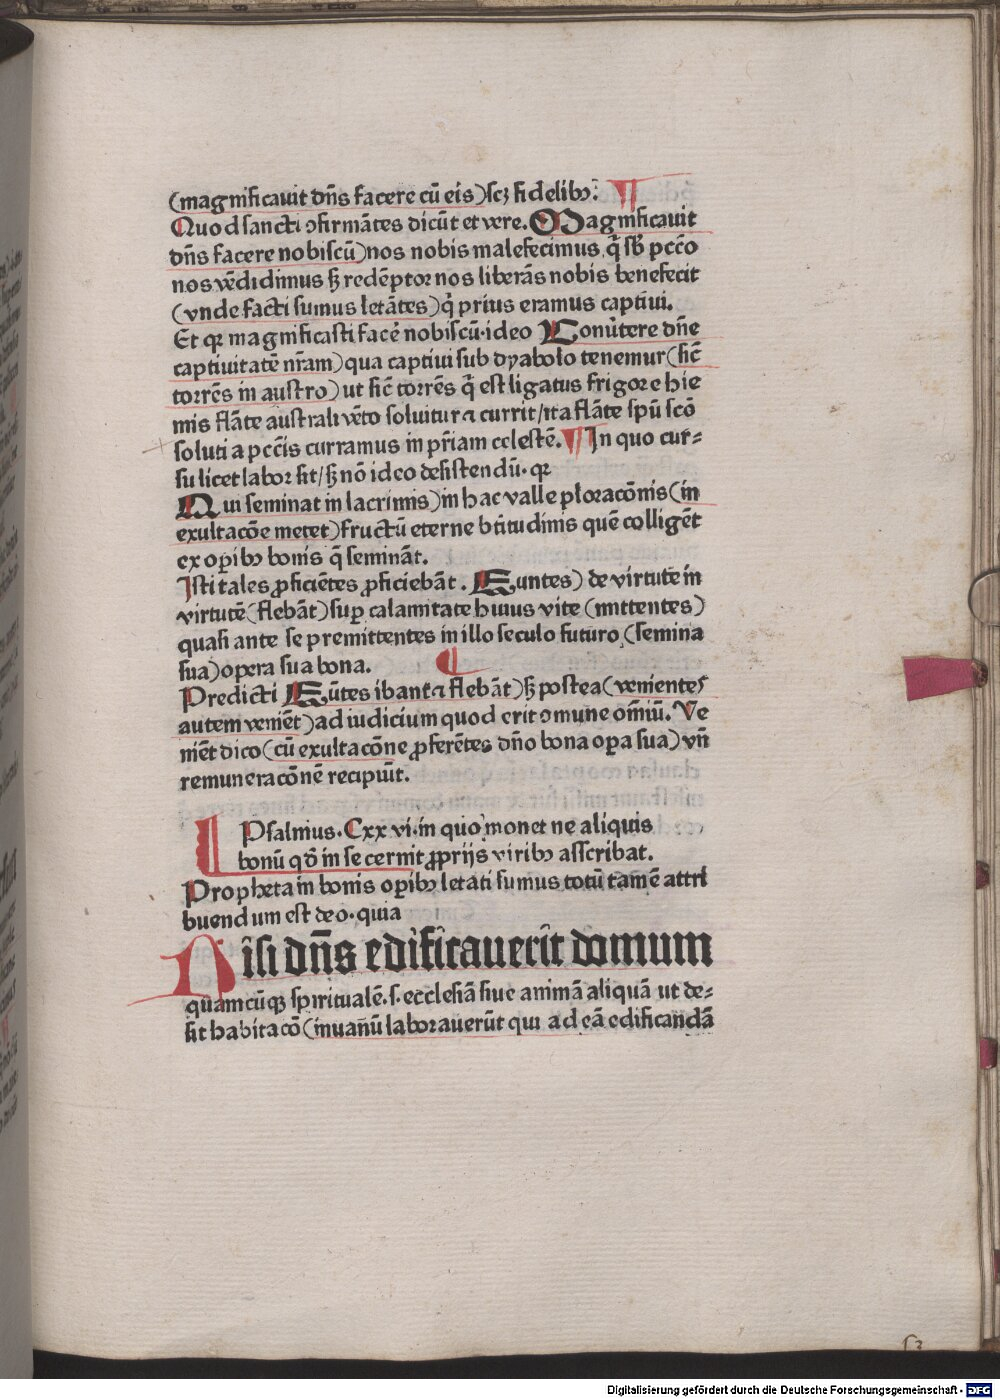 (magnificauit dn̄s facere cū eis)scꝫ fidelibꝰ.
Quod sancti ꝯfirmātes dicūt et vere. Magnificauit
dn̄s facere nobiscū)nos nobis malefecimus q̄ sb̄ pccō
nos vēdidimus sꝫ redēptor nos liberās nobis benefecit
(vnde facti sumus letātes)q̄ prius eramus captiui.
Et qꝛ magnificasti facēr nobiscū·ideo Conūtere dn̄e
captiuitatē nr̄am)qua captiui sub dyabolo tenemur(sic̄
torrēs in austro)ut sic̄ torrēs q̄ est ligatus frigore hie
mis flāte australi vēto soluitur ⁊ currit/ita flāte spū scō
soluti a pccīs curramus in pr̄iam celestē. In quo cur⸗
su licet labor sit/sꝫ nō ideo desistendū· qꝛ
Qui seminat in lacrimis)in hac valle ploracōnis(in
exultacōe metet)fructū eterne btītudinis quē colligēt
ex oꝑibꝰ bonis q̄ semināt.
Isti tales ꝓficiētes ꝓficiebāt. Euntes) de virtute in
virtutē(flebāt)suꝑ calamitate huius vite (mittentes)
quasi ante se premittentes in illo seculo futuro (semina
sua)opera sua bona.
Predicti Eūtes ibant ⁊ flebāt)sꝫ postea(venientes
autem veniēt)ad iudicium quod erit ꝯmune om̄iū. Ve
niēt dico(cū exultacōne ꝓferētes dn̄o bona oꝑa sua)vn̄
remuneracōnē recipiūt.
Psalmus·Cxxvi·in quo monet ne aliquis
bonū qd̄ in se cernit ꝓprijs viribꝰ asscribat.
Propheta in bonis oꝑibꝰ letati sumus totū tamē attri
buendum est deo·quia
Nisi dn̄s edificauerit domum
quamcūqꝫ spiritualē.s.ecclesiā siue animā aliquā ut de⸗
sit habitacō(inuanū laborauerūt qui ad eā edificandā
53
Digitalisierung gefördert durch die Deutsche Forschungsgemeinschaft - DFG